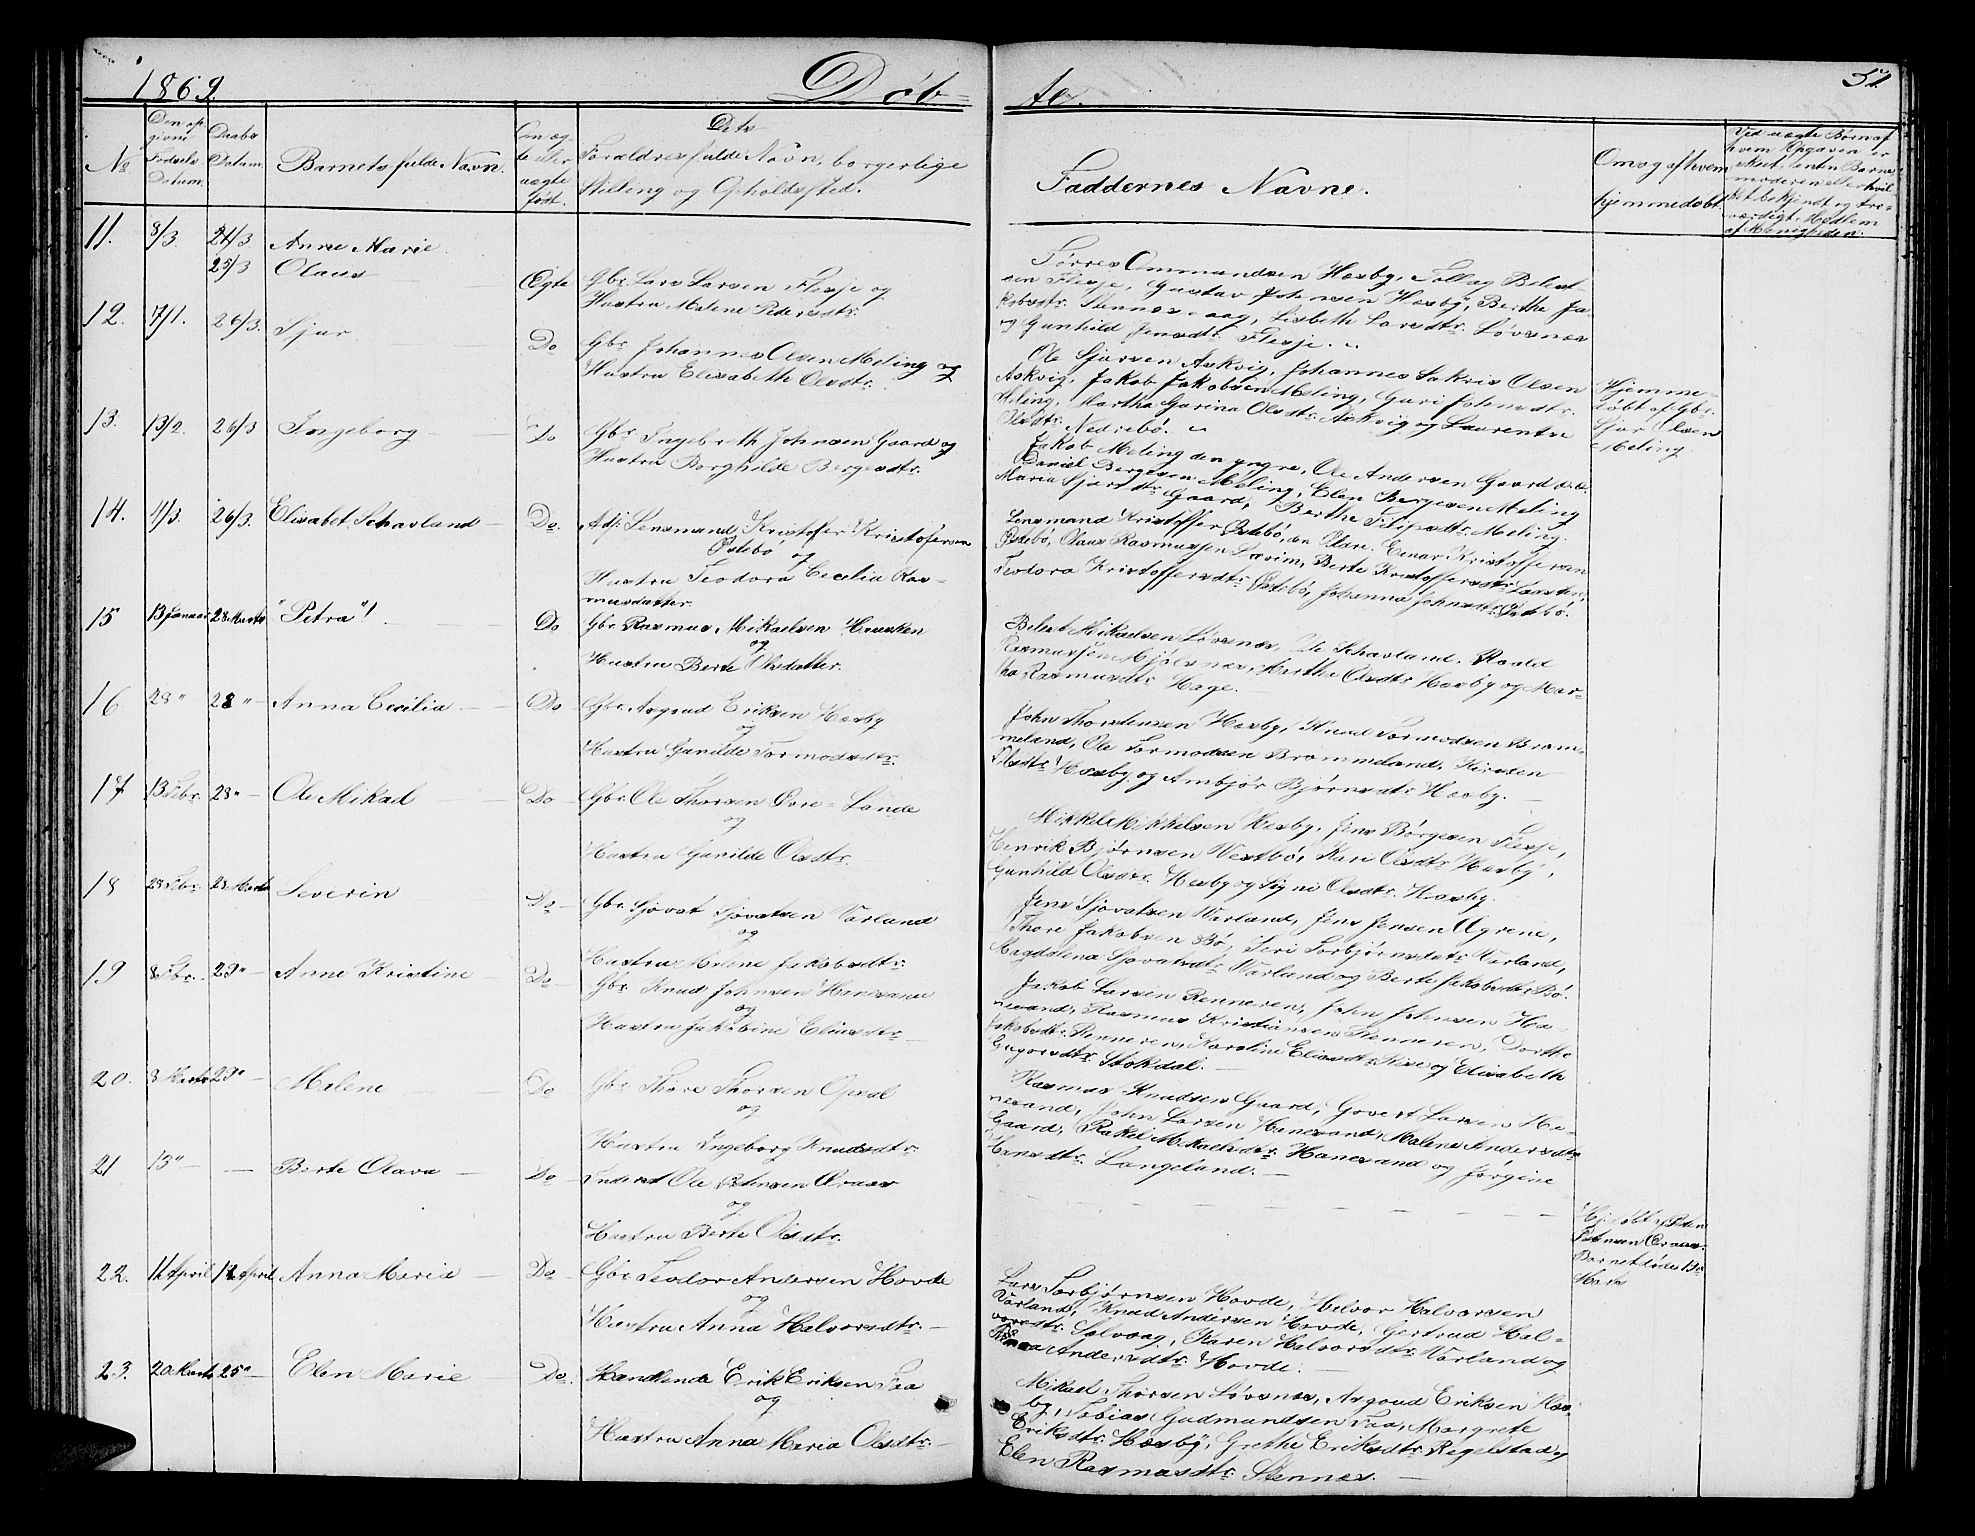 1869. Døb- te. 52
No
Den op-
givne
Fødsels
Datum.
Daabs
Datum.
Barnets fulde Navn.
Om æg-
te eller
uægte
født.
Dets
Forældres fulde Navn, borgerlige
Stilling og Opholdssted.
Faddernes Navne.
Om og af hvem
hjemmedøbt.
Ved uægte Børn af
hvem Opgaven er
sket, enten Barne-
moderen eller hvil-
ket bekjendt og tro-
værdigt Medlem
af Menigheden.
11. 8/3. 21/3 Anne Marie
25/3 Olaus
Ægte Gbr. Lars Larsen Flesje og
Hustru Malene Pedersdtr.
Tørres Ommundsen Hæsby, Tollag Belest-
sen Flesje, Gustav Johnsen Hæsby, Berthe Ja-
kobsdtr. Stennesvaag, Lisbeth Larsdtr. Løvsnes
og Gunhild Jensdtr. Flesje.
12. 7/1. 26/3. Sjur Do Gbr. Johannes Olsen Meling og
Hustru Elisabeth Olsdtr.
Ole Sjursen Askvig, Johannes Sakris Olsen
Askvig, Jakob Jakobsen Meling, Guri Johnsdtr.
Meling, Martha Garina Olsdtr. Askvig og Laurentse
Olsdtr. Nedrebø.
Hjemme-
døbt af Gbr.
Sjur Olsen
Meling
13. 13/2. 26/3 Ingeborg Do Gbr. Ingebreth Johnsen Gaard og
Hustru Borghilde Bergesdtr.
Jakob Meling den yngre, Ole Andersen Gaard d.æ.
Daniel Bergesen Meling, Elen Bergesen Meling
Maria Sjursdtr. Gaard, Berthe Filipsdtr. Meling.
14. 4/3. 26/3. Elisabet Schavland Do. Adj. Lensmand Kristofer Kristofersen
Østebø og
Hustru Teodora Cecilia Ras-
musdatter.
Lensmand Kristoffer Østebø, den Eldre. Einar Kristoffersen
Østebø, Olaus Rasmussen Lervim, Berte Kristoffersdtr.
Teodora Kristoffersdtr. Østebø, Johanna Johnsdtr. Østebø.
15 13 Januar 28 Marts "Petra"! Do Gbr. Rasmus Mikaelsen Hausken
og
Hustru Berte Olsdatter.
Belest Mikaelsen Løvsnes, Ole Schavland. Roald
Rasmussen Mjølsnes, Marthe Olsdtr. Hæsby og Mar-
tha Rasmusdtr. Hage.
16 28 " 28 " Anna Cecilia Do Gbr. Asgaud Eriksen Hæsby
og
Hustru Gunilde Tormodsdtr.
John Thorstensen Hæsby, Knud Tormodsen Bram-
meland, Ole Tormodsen Brommeland, Kirsten
Hæsby og Ambjør Bjørnsdtr. Hæsby.
17 13 Febr. 28 " Ole Mikael Do Gbr. Ole Thorsen Øvre-Lande
og
Hustru Gunilde Olsdtr.
Mikkel Mikkelsen Hæsby, Jens Børgesen Flesje,
Henrik Bjørnsen Vestbø, Kari Olsdtr. Hæsby,
Gunhild Olsdtr. Hæsby og Signi Olsdtr. Hæsby.
18 28 Febr. 28 Marts Severin Do Gbr. Sjovat Sjovatsen Varland
og
Hustru Malene Jakobsdtr.
Jens Sjovatsen Varland, Jens Jensen Ogrene,
Thore Jakobsen Bø, Seri Torbjørnsdtr. Varland,
Magdalena Sjovatsdtr. Varland og Berte Jakobsdtr. Bø.
19 8 Fbr. 29 " Anne Kristine Do Gbr. Knud Johnsen Hanesand
og
Hustru Jakobine Eliasdtr.
Jakob Larsen Renneren, John Johnsen Ha-
nesand, Rasmus Kristiansen Renneren, Dorthe
Jakobsdtr. Renneren, Karoline Eliasdtr. og Elisabeth
Stokdal.
20. 8 Marts 29 " Malene Do Gbr. Thore Thorsen Opsal
og
Hustru Ingeborg Knudsdtr.
Rasmus Knudsen Gaard, Govert Larsen Ha-
nesand, John Larsen Hanesand, Malene Andersdtr.
Gaard, Rakel Mikaelsdtr. Hanesand og Jørgine
Hansdtr. Langeland.
21 13 " Berte Olava Do Inderst Ole Østensen Øraas
og
Hustru Berte Olsdtr.
Hj. døbt af Østen
Østensen Øraas.
Barnet døde 19de
Marts
22. 11 April 12 April Anna Maria Do Gbr. Teodor Andersen Hovde
og
Hustru Anna Halvorsdtr.
Lars Torbjørnsen Hovde, Helvor Halvorsen
Varland, Knud Andersen Hovde, Gertrud Hal-
vorsdtr. Solvaag, Karen Halvorsdtr. Varland og
Anna Andersdtr. Hovde.
23. 20 Marts 25 " Elen Marie Do. Handlende Erik Eriksen Faa
og
Hustru Anna Maria Olsdtr.
Mikael Thorsen Løvsnes, Asgaud Eriksen Hæs-
by, Tobias Gudmundsen Faa, Margrete
Eriksdtr. Hæsby, Grethe Eriksdtr. Regelstad og
Elen Rasmusdtr. Stennes.